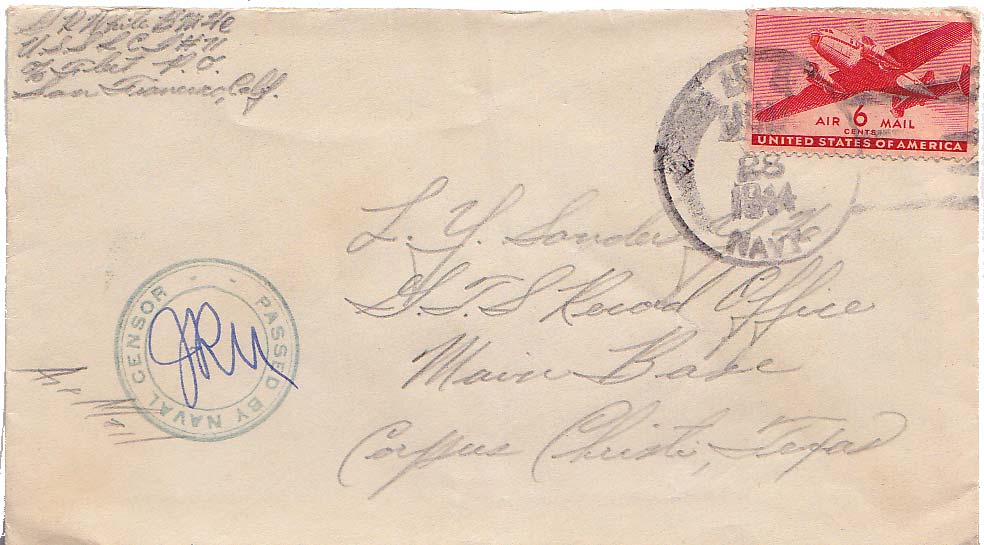 White
U.S.S. L C I #71
% Fleet P.O.
San Francisco, Calif.
AIR 6 MAIL
CENTS
UNITED STATES OF AMERICA
28
1944
NAVY
L. Y. Sanders
G.T.S Record Office
Main Base
Corpus Christi, Texas
PASSED BY NAVAL CENSOR
JRM
Air Mail